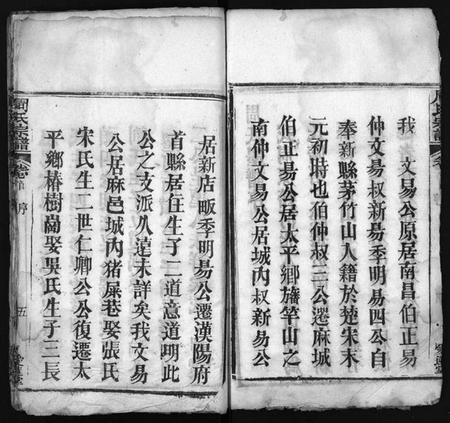 我 文易公原居南昌伯正易
仲文易叔新易季明易四公自
奉新縣茅竹山入籍於楚宋末
元初時也伯仲叔三公遷麻城
伯正易公居太平鄉旛竿山之
南仲文易公居城內叔新易公
居新店畈季明易公遷漢陽府
首縣居住生子二道意道明此
公之支派久遠未詳矣我文易
公居麻邑城內猪屎巷娶張氏
宋氏生二世仁卿公公復遷太
平鄉椿樹崗娶吳氏生子三長
周氏宗譜 卷 序 五